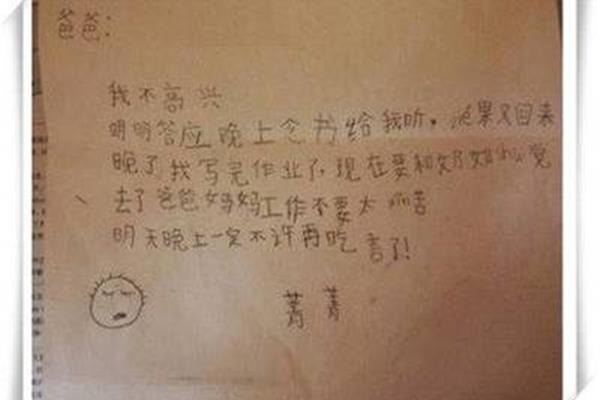 爸爸：
我不高兴
明明答应晚上念书给我听，果又回来
晚了我写完作业了，现在要和奶奶觉
去了爸爸妈妈工作不要太苦
明天晚上一定不许再吃言了！
菁菁